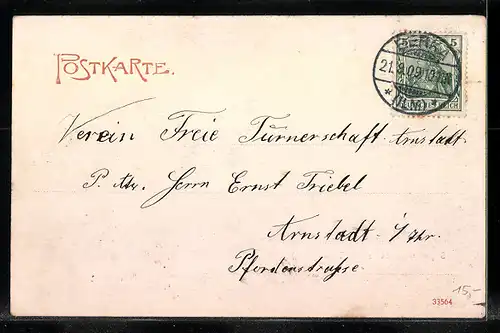 POSTKARTE.
5
21.8.09
Verein Freie Turnerschaft Arnstadt
P. Adr. Herrn Ernst Triebel
Arnstadt i/Thr.
Pfordenstraße
15,-
33564